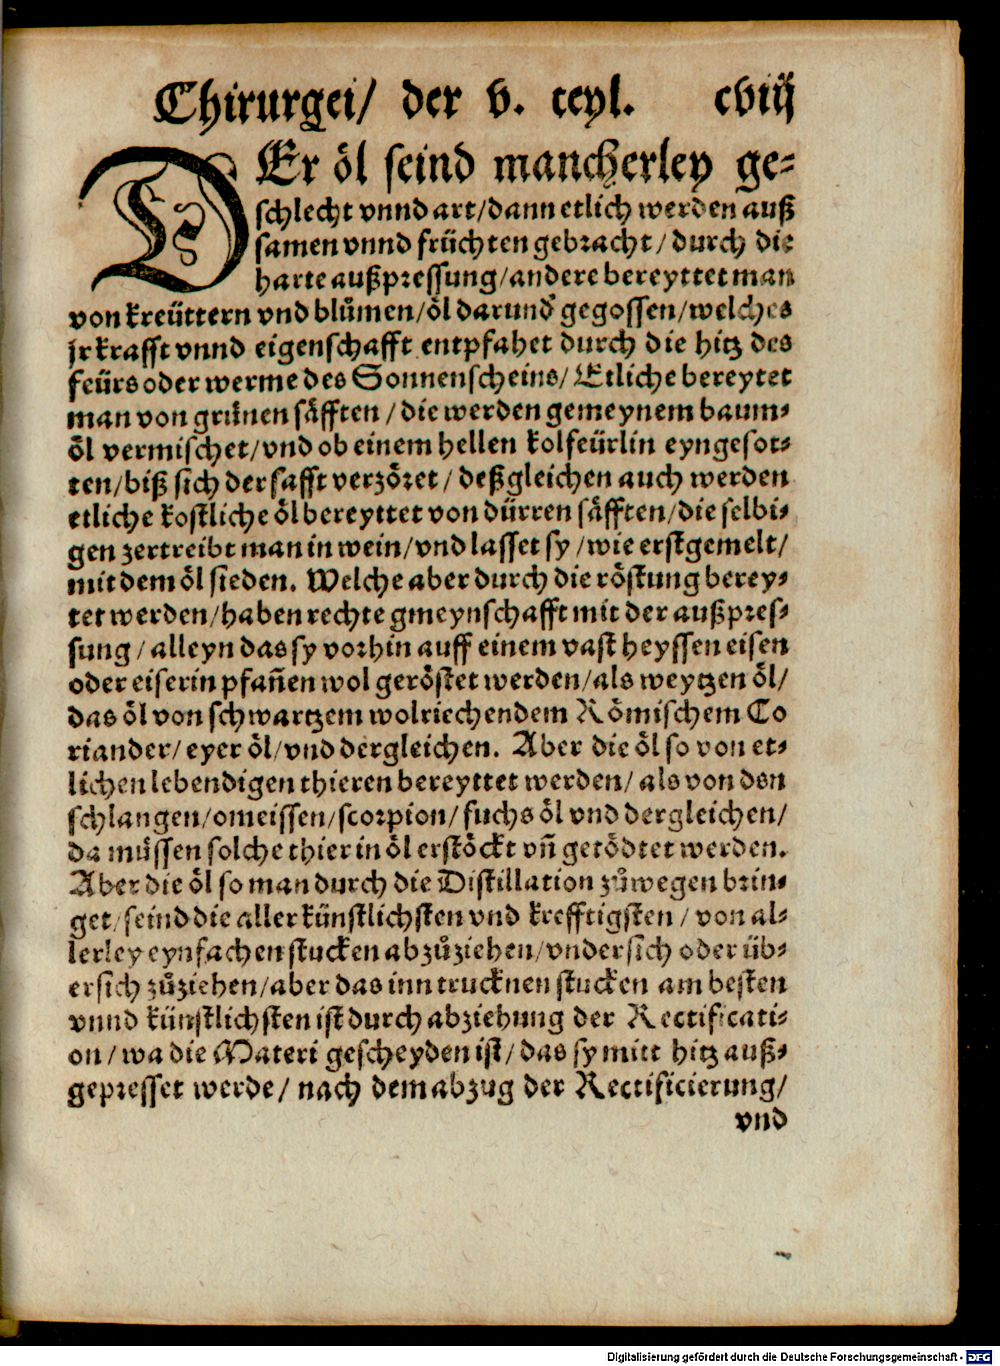 Chirurgei/ der v. teyl. cviij
DEr öl seind mancherley ge-
schlecht vnnd art/dann etlich werden auß
samen vnnd früchten gebracht/durch die
harte außpressung/andere bereyttet man
von kreüttern vnd blůmen/öl darund' gegossen/welches
jr krafft vnnd eigenschafft entpfahet durch die hitz des
feürs oder werme des Sonnenscheins/Etliche bereytet
man von grůnen säfften/die werden gemeynem baum-
öl vermischet/vnd ob einem hellen kolfeürlin eyngesot-
ten/biß sich der safft verzöret/deßgleichen auch werden
etliche kostliche öl bereyttet von dürren säfften/die selbi-
gen zertreibt man in wein/vnd lasset sy/wie erstgemelt/
mit dem öl sieden. Welche aber durch die röstung berey-
tet werden/haben rechte gmeynschafft mit der außpres-
sung/alleyn das sy vorhin auff einem vast heyssen eisen
oder eiserin pfañen wol geröstet werden/als weytzen öl/
das öl von schwartzem wolriechendem Römischem Co
riander/eyer öl/vnd dergleichen. Aber die öl so von et-
lichen lebendigen thieren bereyttet werden/als von den
schlangen/omeissen/scorpion/fuchs öl vnd dergleichen/
da müssen solche thier in öl erstöckt vñ getödtet werden.
Aber die öl so man durch die Distillation zůwegen brin-
get/seind die aller künstlichsten vnd krefftigsten/von al-
lerley eynfachen stucken abzůziehen/vndersich oder üb-
ersich zůziehen/aber das inn trucknen stucken am besten
vnnd künstlichsten ist durch abziehung der Rectificati-
on/wa die Materi gescheyden ist/das sy mitt hitz auß-
gepresset werde/nach dem abzug der Rectificierung/
vnd
Digitalisierung gefördert durch die Deutsche Forschungsgemeinschaft - DFG